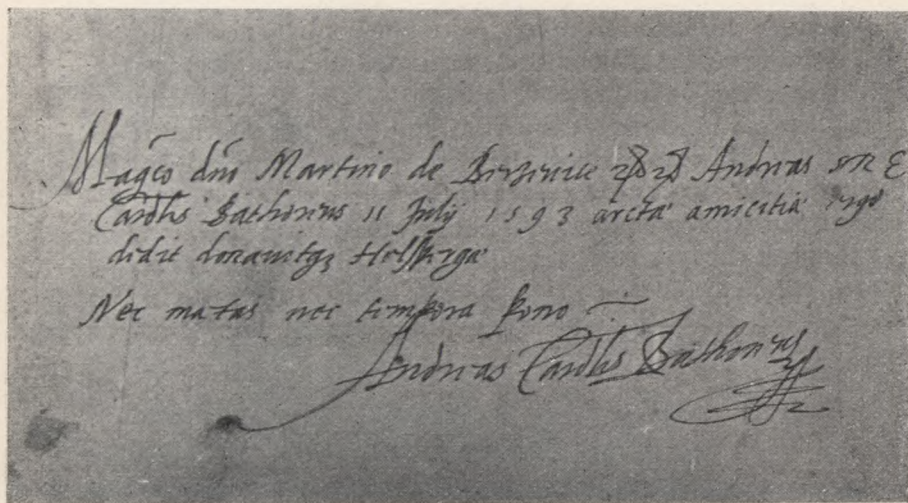 Mag̃co dño Martino de Berzevice Andreas SRE
Cardlis Bathoreus 11 Julij 1593 arcta amicitia ergo
dedit donavitqꝫ Helsperga
Nec metas nec tempora pono
Andreas Cardlis Bathoreus